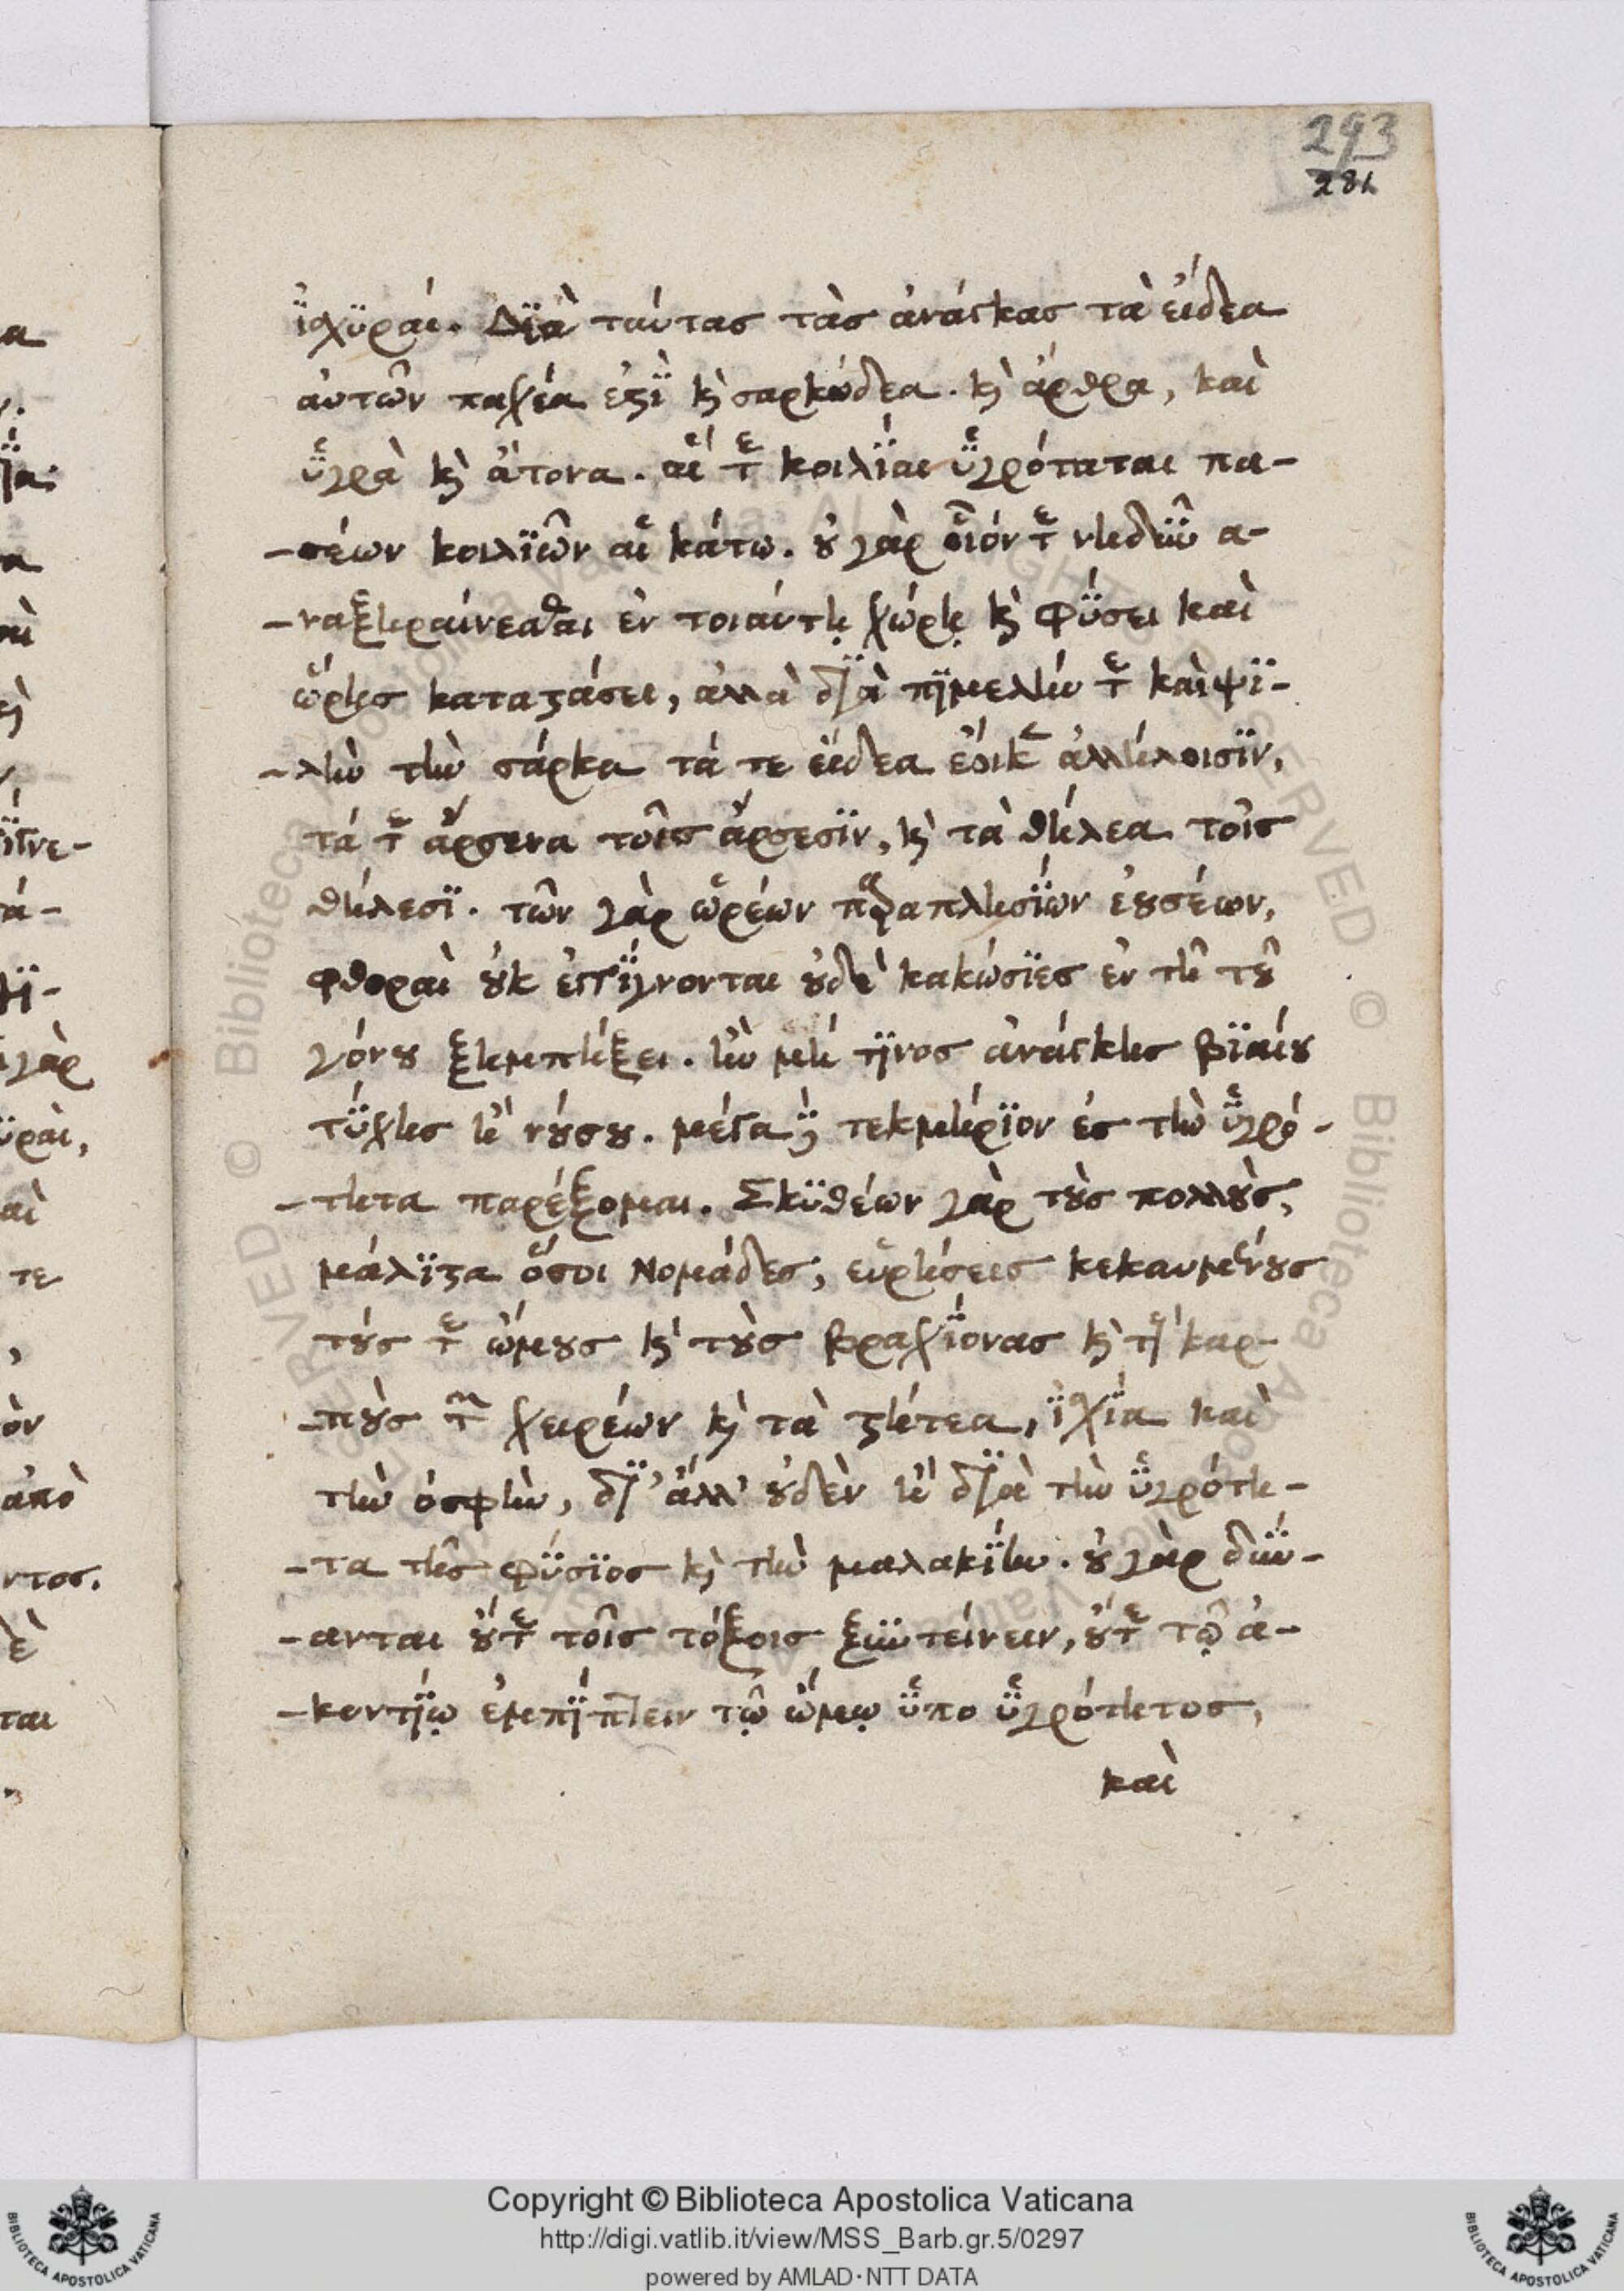 293
281
ἰσχυραί. Διὰ ταύτας τὰς ἀνάγκας τὰ εἴδεα
αὐτῶν παχέα ἐστὶ καὶ σαρκώδεα. καὶ ἄρθρα, καὶ
ὑγρὰ καὶ ἄτονα. αἵ τε κοιλίαι ὑγρόταται πα-
-σέων κοιλιῶν αἱ κάτω. οὐ γὰρ οἷόν τε νηδὺν ἀ-
-ναξηραίνεσθαι ἐν τοιαύτῃ χώρῃ καὶ φύσει καὶ
ὥρης καταστάσει, ἀλλὰ διὰ πιμελὴν τε καὶ ψι-
-λὴν τὴν σάρκα τά τε εἴδεα ἔοικε ἀλλήλοισιν,
τά τε ἄρσενα τοῖς ἄρσεσιν, καὶ τὰ θήλεα τοῖς
θήλεσι. τῶν γὰρ ὡρέων παραπλησίων ἐουσέων,
φθοραὶ οὐκ ἐγγίγνονται οὐδὲ κακώσιες ἐν τῇ τοῦ
γόνου ξυμπήξει. ἢν μή τινος ἀνάγκης βιαίου
τύχῃς ἢ νούσου. μέγα δὲ τεκμήριον ἐς τὴν ὑγρό-
-τητα παρέξομαι. Σκυθέων γὰρ τοὺς πολλοὺς,
μάλιστα ὅσοι Νομάδες, εὑρήσεις κεκαυμένους
τούς τε ὤμους καὶ τοὺς βραχίονας καὶ τοὺς καρ-
-ποὺς τῶν χειρέων καὶ τὰ στήτεα, ἰσχία καὶ
τὴν ὀσφὺν, δι' ἄλλ' οὐδὲν ἢ διὰ τὴν ὑγρότη-
-τα τῆς φύσιος καὶ τὴν μαλακίην. οὐ γὰρ δύν-
-ανται οὔτε τοῖς τόξοις ξυντείνειν, οὔτε τῷ ἀ-
-κοντίῳ ἐμπίπτειν τῷ ὤμῳ ὑπο ὑγρότητος,
καὶ
Copyright © Biblioteca Apostolica Vaticana
http://digi.vatlib.it/view/MSS_Barb.gr.5/0297
powered by AMLAD·NTT DATA